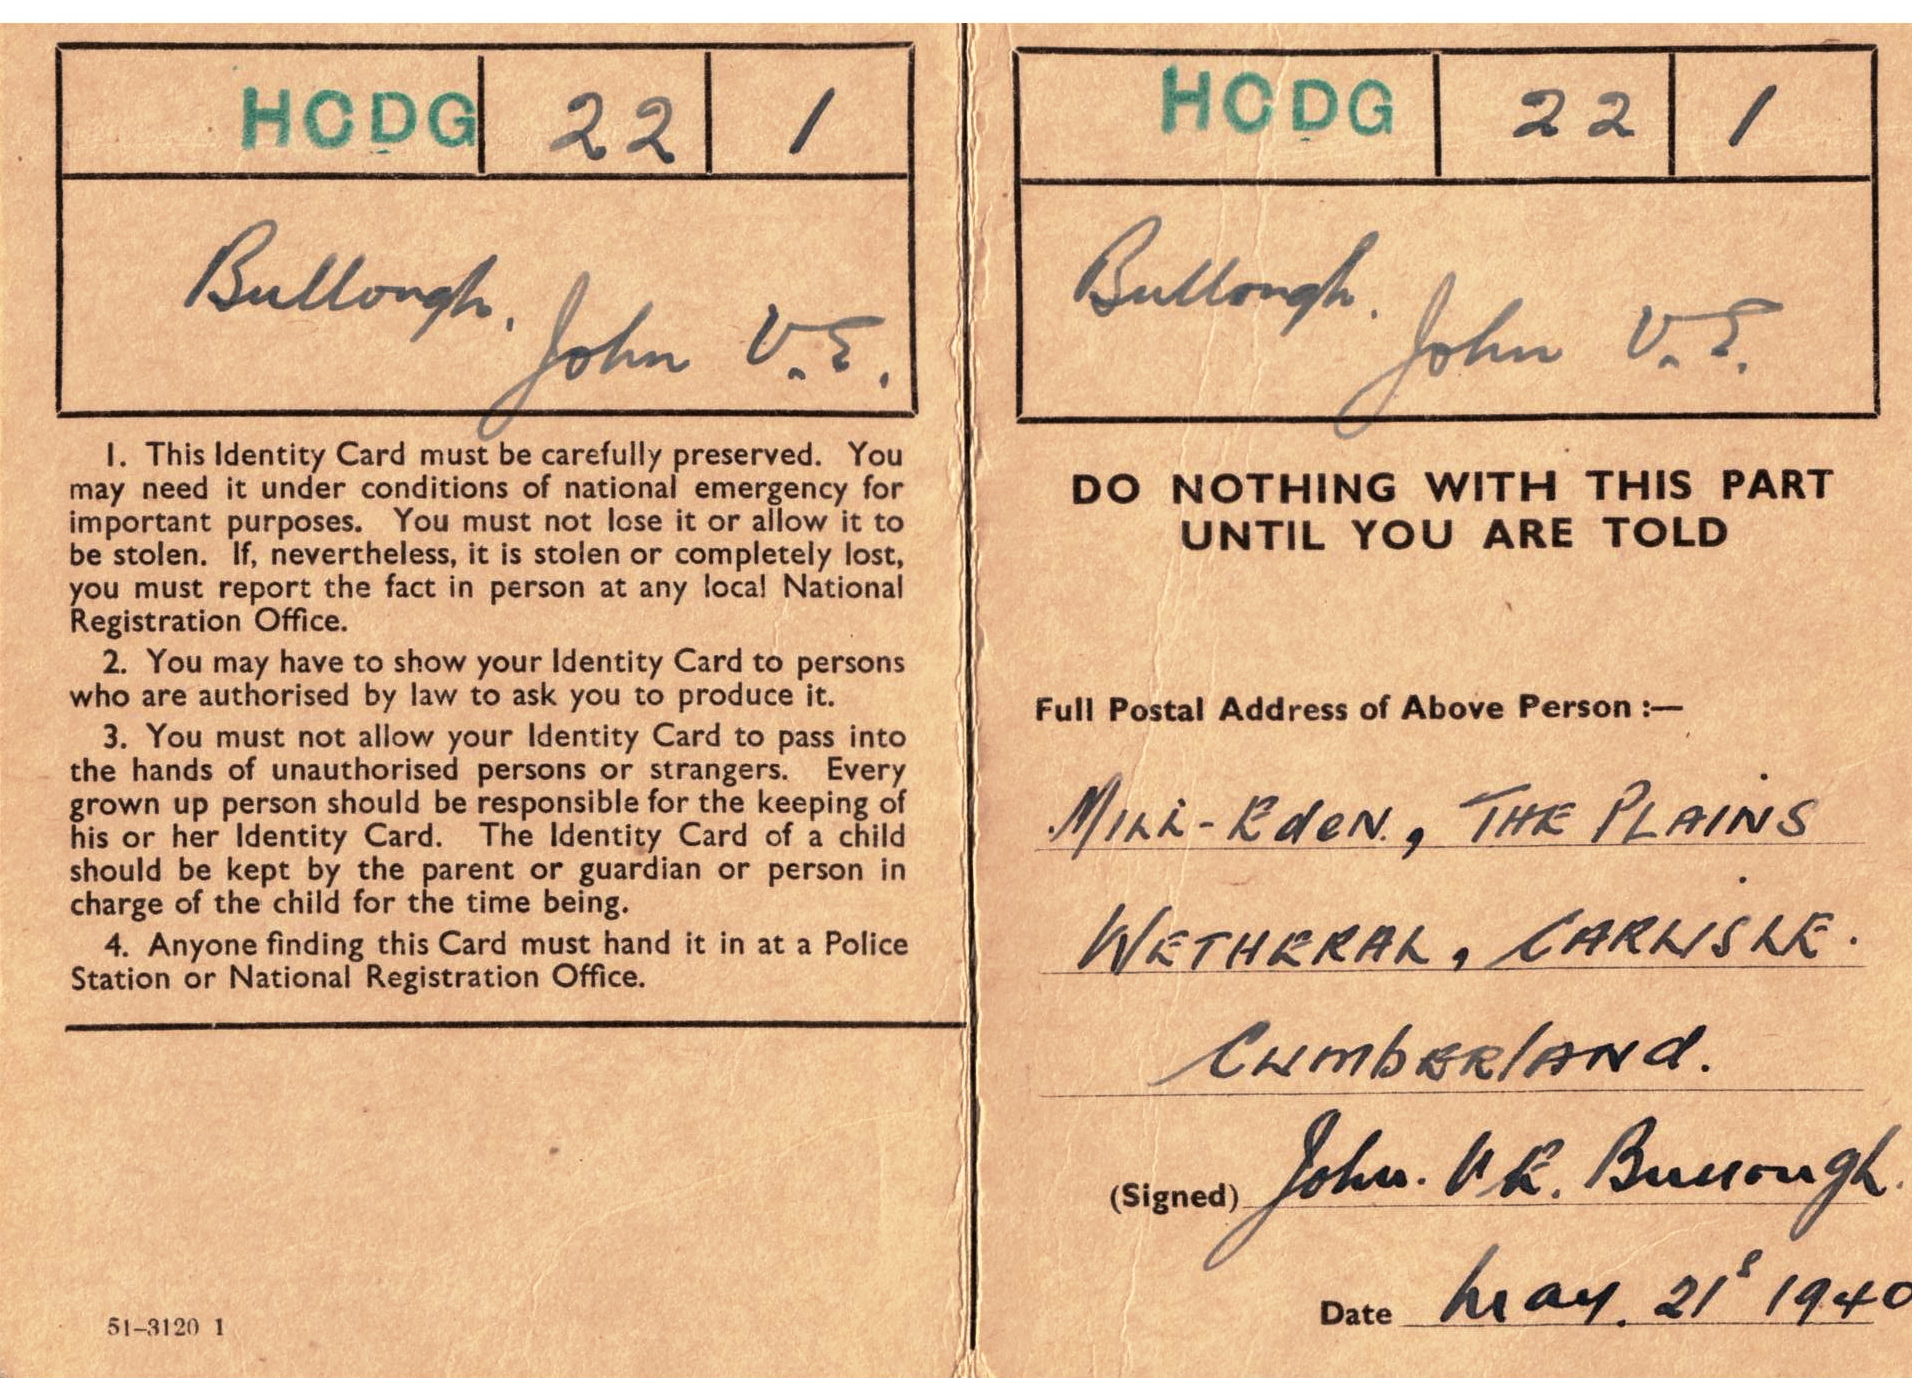 HCDG 22 1
Bullough, John V.E.
1. This Identity Card must be carefully preserved. You
may need it under conditions of national emergency for
important purposes. You must not lose it or allow it to
be stolen. If, nevertheless, it is stolen or completely lost,
you must report the fact in person at any local National
Registration Office.
2. You may have to show your Identity Card to persons
who are authorised by law to ask you to produce it.
3. You must not allow your Identity Card to pass into
the hands of unauthorised persons or strangers. Every
grown up person should be responsible for the keeping of
his or her Identity Card. The Identity Card of a child
should be kept by the parent or guardian or person in
charge of the child for the time being.
4. Anyone finding this Card must hand it in at a Police
Station or National Registration Office.
51-3120 1
HCDG 22 1
Bullough. John V.E.
DO NOTHING WITH THIS PART
UNTIL YOU ARE TOLD
Full Postal Address of Above Person :—
Mill-Eden, THE PLAINS
WETHERAL, CARLISLE.
CumbERlANd.
(Signed) John. V E. Bullough.
Date May. 21s 1940